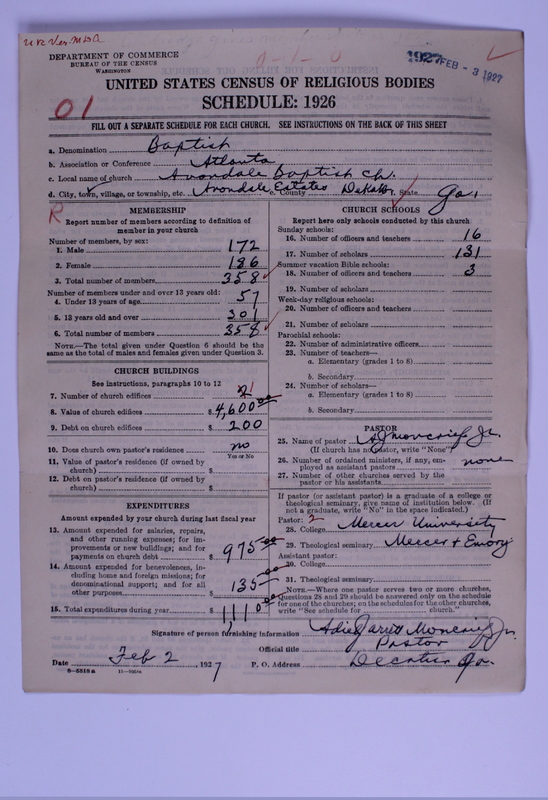 DEPARTMENT OF COMMERCE
BUREAU OF THE CENSUS
WASHINGTON
1927 FEB - 3 1927
UNITED STATES CENSUS OF RELIGIOUS BODIES
SCHEDULE: 1926
01
FILL OUT A SEPARATE SCHEDULE FOR EACH CHURCH. SEE INSTRUCTIONS ON THE BACK OF THIS SHEET
a. Denomination Baptist
b. Association or Conference Atlanta
c. Local name of church Avondale Baptist Ch.
d. City, town, village, or township, etc. Avondale Estates e. County DeKalb f. State Ga.
R
MEMBERSHIP
Report number of members according to definition of
member in your church
Number of members, by sex:
1. Male 172
2. Female 186
3. Total number of members 358
Number of members under and over 13 years old:
4. Under 13 years of age 57
5. 13 years old and over 301
6. Total number of members 358
NOTE.—The total given under Question 6 should be the
same as the total of males and females given under Question 3.
CHURCH BUILDINGS
See instructions, paragraphs 10 to 12
7. Number of church edifices 1
8. Value of church edifices $ 4,600.00
9. Debt on church edifices $ 200
10. Does church own pastor's residence? no
Yes or No
11. Value of pastor's residence (if owned by
church) $
12. Debt on pastor's residence (if owned by
church) $
EXPENDITURES
Amount expended by your church during last fiscal year
13. Amount expended for salaries, repairs,
and other running expenses; for im-
provements or new buildings; and for
payments on church debt $ 975.00
14. Amount expended for benevolences, in-
cluding home and foreign missions; for
denominational support; and for all
other purposes $ 135.00
15. Total expenditures during year $ 1110.00
CHURCH SCHOOLS
Report here only schools conducted by this church
Sunday schools:
16. Number of officers and teachers 16
17. Number of scholars 131
Summer vacation Bible schools:
18. Number of officers and teachers 3
19. Number of scholars
Week-day religious schools:
20. Number of officers and teachers
21. Number of scholars
Parochial schools:
22. Number of administrative officers
23. Number of teachers—
a. Elementary (grades 1 to 8)
b. Secondary
24. Number of scholars—
a. Elementary (grades 1 to 8)
b. Secondary
PASTOR
25. Name of pastor A J Moncrief, Jr.
(If church has no pastor, write "None")
26. Number of ordained ministers, if any, em-
ployed as assistant pastors none
27. Number of other churches served by the
pastor or his assistants
If pastor (or assistant pastor) is a graduate of a college or
theological seminary, give name of institution below. (If
not a graduate, write "No" in the space indicated.)
Pastor: 2
28. College Mercer University
29. Theological seminary Mercer & Emory
Assistant pastor:
30. College
31. Theological seminary
NOTE.—Where one pastor serves two or more churches,
Questions 28 and 29 should be answered only on the schedule
for one of the churches; on the schedules for the other churches,
write "See schedule for church."
Signature of person furnishing information Adiel Jarrett Moncrief, Jr.
Official title Pastor
Date Feb 2, 1927 P. O. Address Decatur Ga.